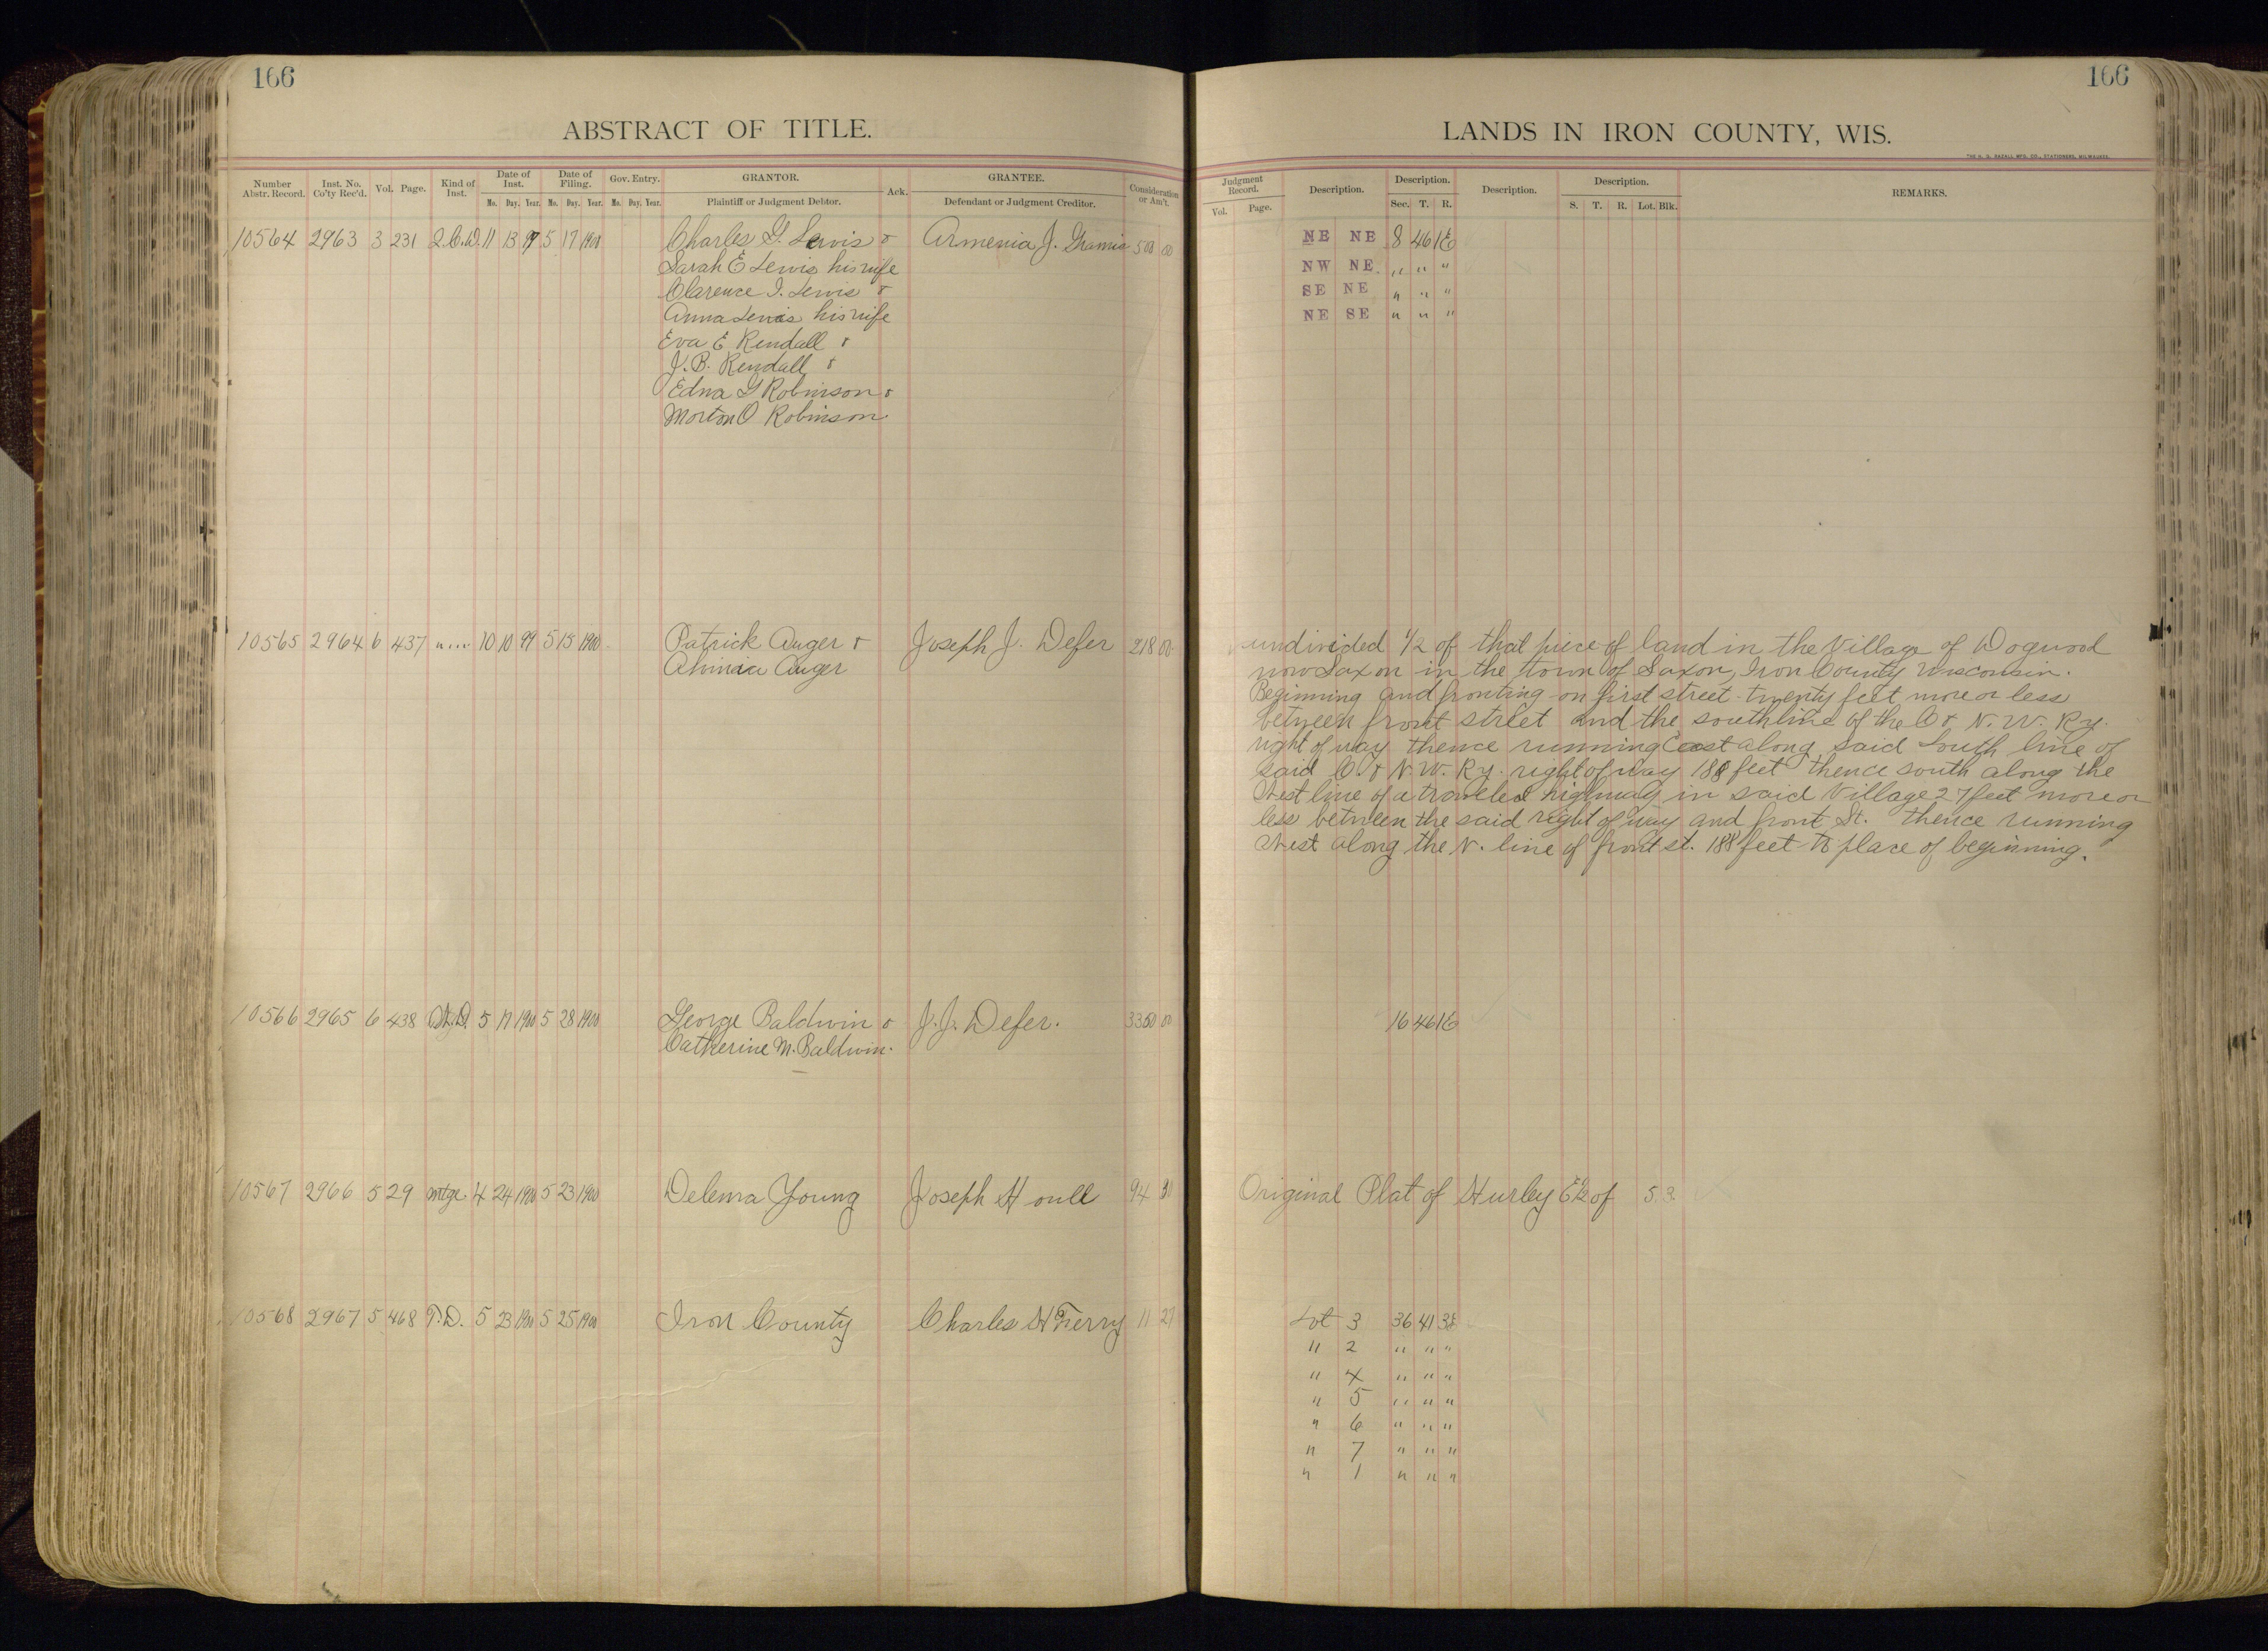 166
166
ABSTRACT OF TITLE.
LANDS IN IRON COUNTY, WIS.
THE H. G. RAZALL MFG. CO., STATIONERS, MILWAUKEE.
Number Abstr. Record. Inst. No. Co'ty Rec'd. Vol. Page. Kind of Inst. Date of Inst. Mo. Day. Year. Date of Filing. Mo. Day. Year. Gov. Entry. Mo. Day. Year. GRANTOR. Plaintiff or Judgment Debtor. Ack. GRANTEE. Defendant or Judgment Creditor. Consideration or Am't.
Judgment Record. Vol. Page. Description. Description. Sec. T. R. Description. Description. S. T. R. Lot. Blk. REMARKS.
10564 2963 3 231 Q.C.D. 11 13 97 5 17 1900 Charles G. Lewis & Armenia J. 500 00 NE NE 8 46 1E
Sarah E Lewis his wife NW NE " " "
Clarence I. Lewis & SE NE " " "
Anna Lewis his wife NE SE " " "
Eva E Kendall &
J. B. Kendall &
Edna G Robinson &
Morton O Robinson
10565 2964 6 437 " " " " 10 10 99 5 15 1900 Patrick Auger & Joseph J. Defer 218 00 undivided 1/2 of that piece of land in the Village of Dogwood
Auger now Saxon in the town of Saxon, Iron County Wisconsin.
Beginning and fronting on first street twenty feet more or less
between front street and the south line of the C & N. W. Ry.
right of way thence running East along said South line of
said C. & N. W. Ry. right of way 188 feet thence south along the
West line of a traveled highway in said Village 27 feet more or
less between the said right of way and front St. thence running
West along the N. line of front st. 188 feet to place of beginning.
10566 2965 6 438 5 17 1900 5 28 1900 George Baldwin & J. J. Defer. 3350 00 16 46 1E
Catherine M. Baldwin.
10567 2966 5 29 mtge 4 24 1900 5 23 1900 Delema Young Joseph Houll 94 30 Original Plat of Hurley E½ of 5 3
10568 2967 5 468 T.D. 5 23 1900 5 25 1900 Iron County Charles H Terry 11 27 Lot 3 36 41 3E
" 2 " " "
" 4 " " "
" 5 " " "
" 6 " " "
" 7 " " "
" 1 " " "